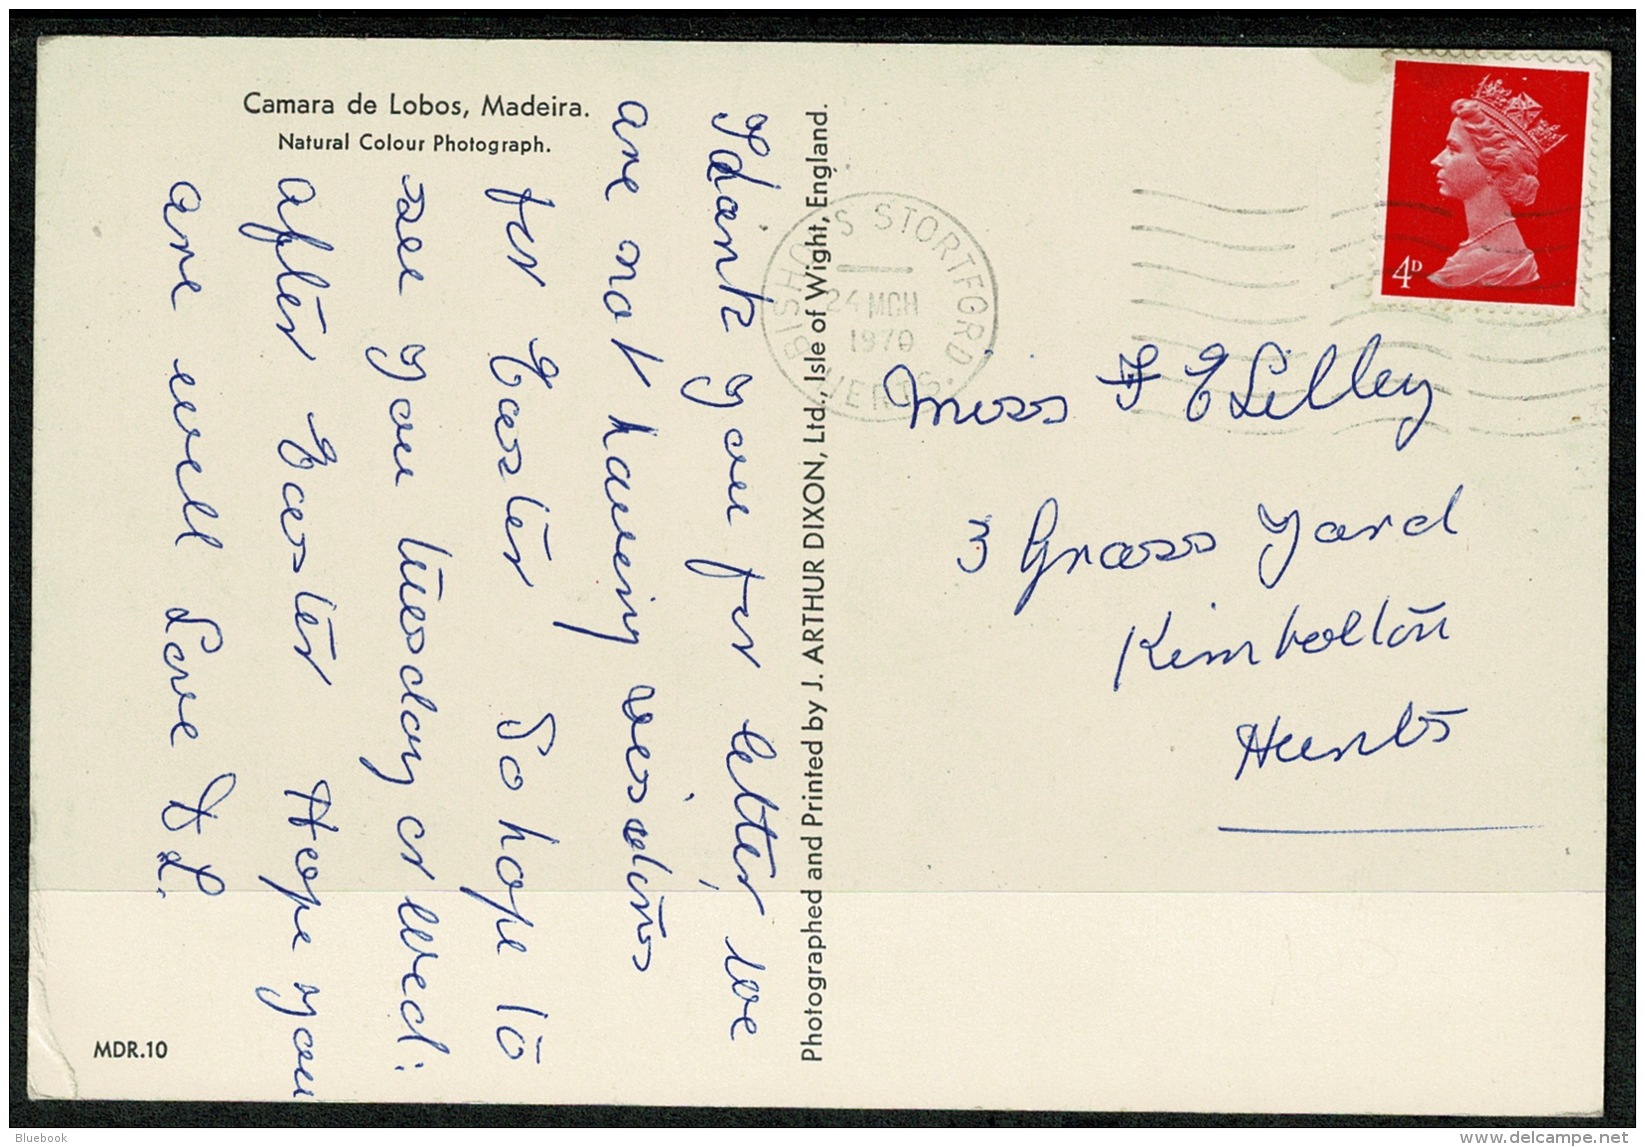 Camara de Lobos, Madeira.
Natural Colour Photograph.
Thank you for letter, we
are not having visitors
for Easter So hope to
see you tuesday or Wed:
after Easter Hope you
are well Love F
L.
Photographed and Printed by J. ARTHUR DIXON, Ltd., Isle of Wight, England.
BISHOP'S STORTFORD
24 MCH
1970
HERTS.
4D
Miss F E Lilley
3 Grass Yard
Kimbolton
Hunts
MDR.10
Bluebook
delcampe.net